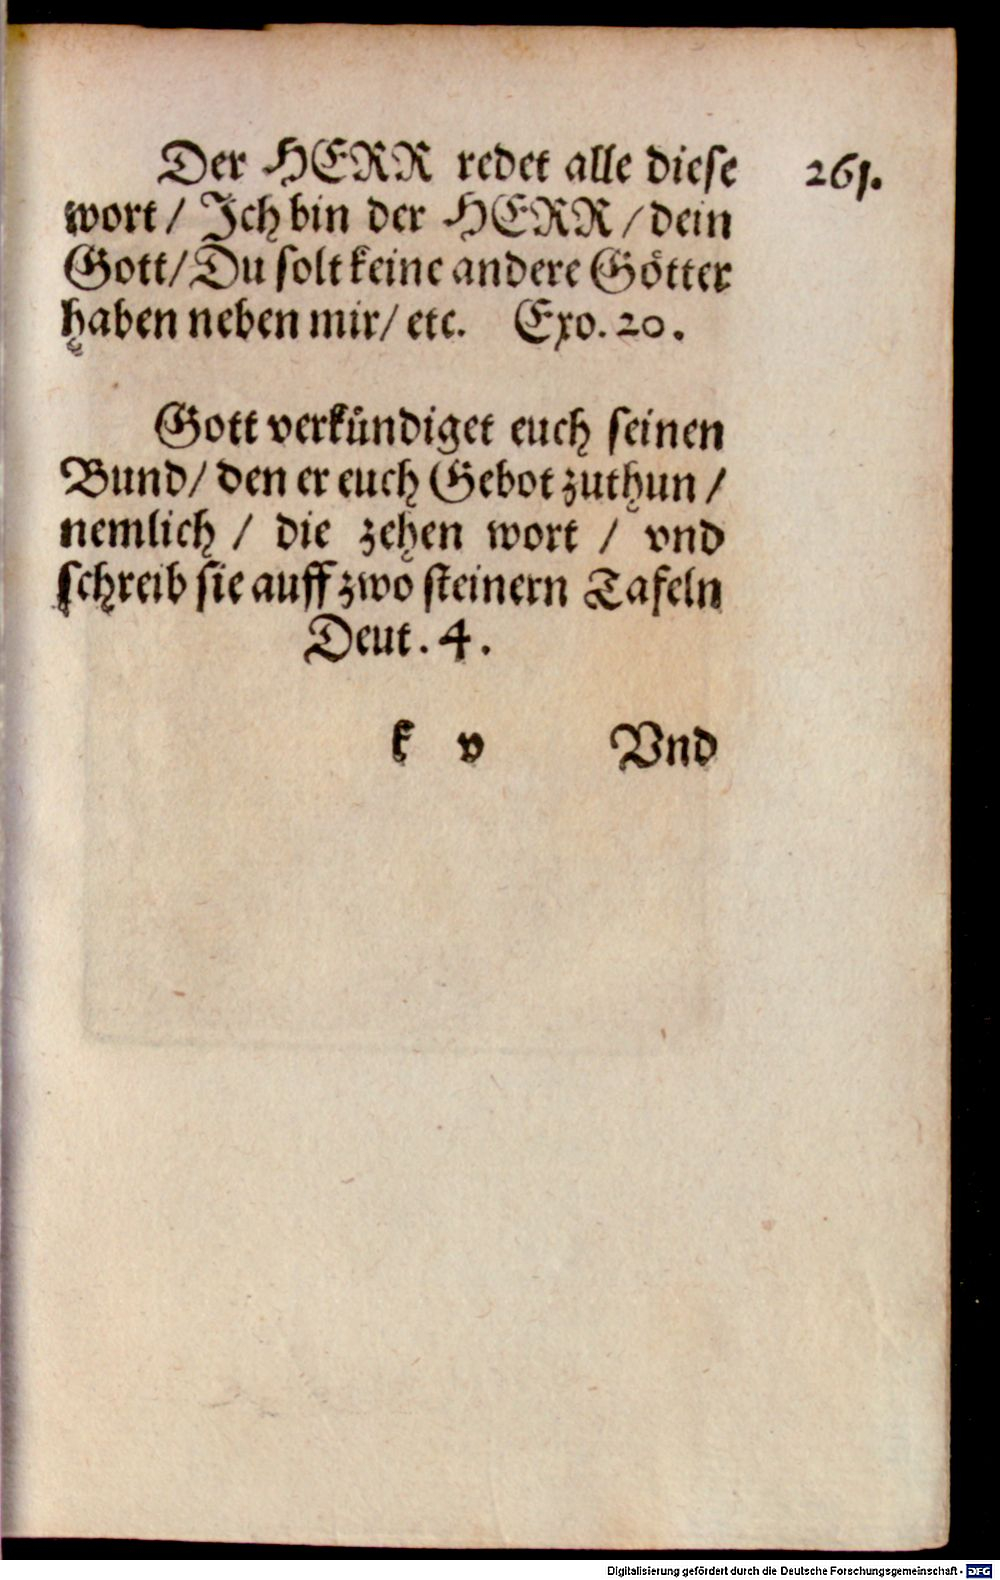 Der HERR redet alle diese
261.
wort/ Ich bin der HERR/dein
Gott/Du solt keine andere Götter
haben neben mir/ etc. Exo. 20.
Gott verkündiget euch seinen
Bund/ den er euch Gebot zuthun/
nemlich / die zehen wort / vnd
schreib sie auff zwo steinern Tafeln
Deut. 4.
k v Vnd
Digitalisierung gefördert durch die Deutsche Forschungsgemeinschaft - DFG